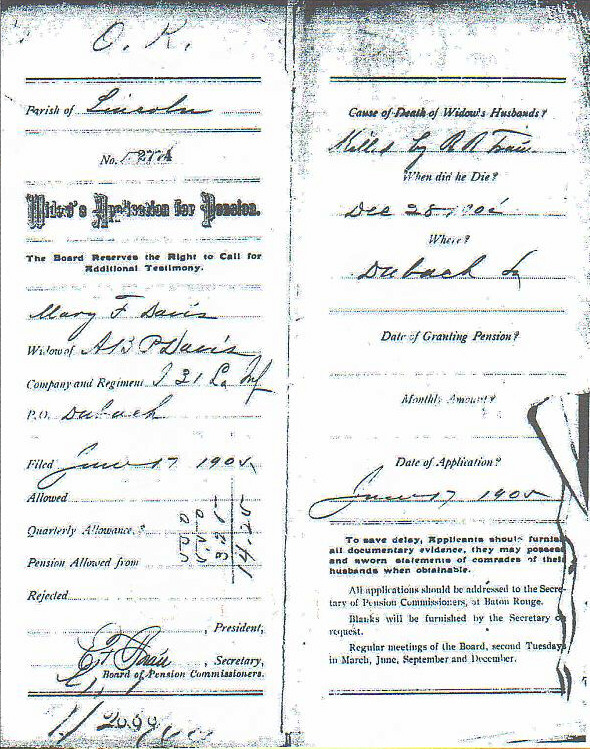 O. K.
Parish of Lincoln
No.
Widow's Application for Pension.
The Board Reserves the Right to Call for
Additional Testimony.
Mary F Davis
Widow of A B P Davis
Company and Regiment I 31 La Inf
P.O. Dubach
Filed June 17 1905
Allowed
Quarterly Allowance, ?
Pension Allowed from
Rejected
5.00
5.50
3.75
14.25
, President,
, Secretary,
Board of Pension Commissioners.
Cause of Death of Widow's Husbands?
Killed by R R Train
When did he Die?
Dec 28
Where?
Dubach La
Date of Granting Pension?
Monthly Amount?
Date of Application?
June 17 1905
To save delay, Applicants should furnish
all documentary evidence, they may possess
and sworn statements of comrades of their
husbands when obtainable.
All applications should be addressed to the Secre-
tary of Pension Commissioners, at Baton Rouge.
Blanks will be furnished by the Secretary on
request.
Regular meetings of the Board, second Tuesdays
in March, June, September and December.